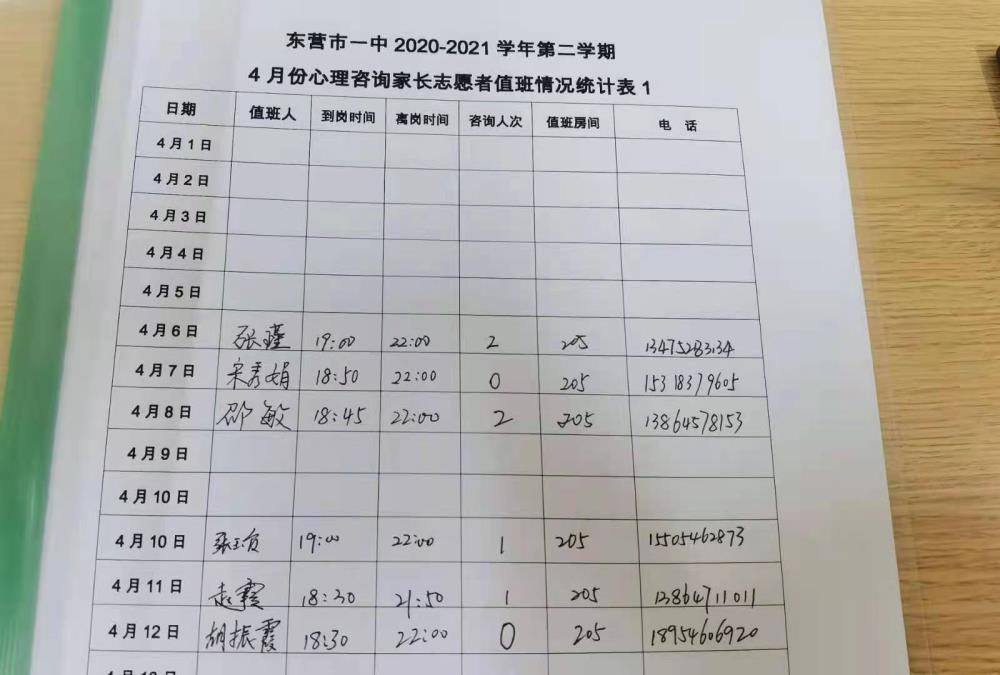 东营市一中 2020-2021 学年第二学期
4 月份心理咨询家长志愿者值班情况统计表 1
日期 值班人 到岗时间 离岗时间 咨询人次 值班房间 电 话
4 月 1 日
4 月 2 日
4 月 3 日
4 月 4 日
4 月 5 日
4 月 6 日 张瑾 19:00 22:00 2 205 13475283134
4 月 7 日 宋秀娟 18:50 22:00 0 205 15318379605
4 月 8 日 邵敏 18:45 22:00 2 205 13864578153
4 月 9 日
4 月 10 日
4 月 10 日 19:00 22:00 1 205 15505462873
4 月 11 日 赵霞 18:30 21:50 1 205 13864711011
4 月 12 日 胡振霞 18:30 22:00 0 205 18954606920